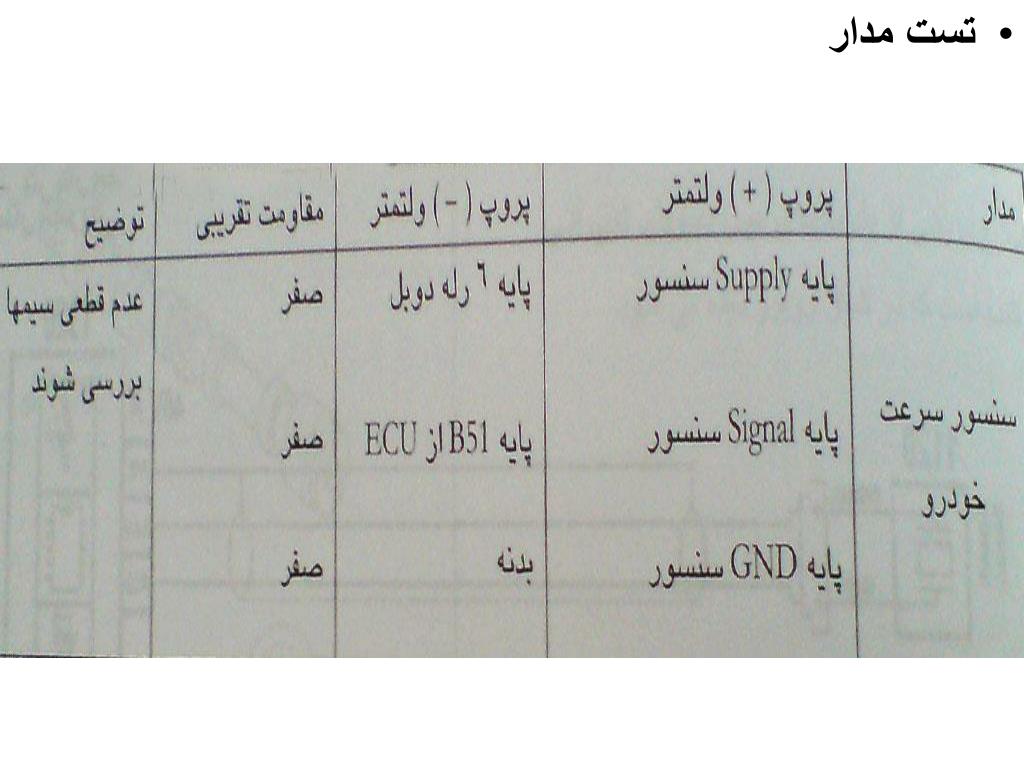 • تست مدار
مدار	پروپ (+) ولتمتر	پروپ (−) ولتمتر	مقاومت تقریبی	توضیح
پایه Supply سنسور	پایه ٦ رله دوبل	صفر	عدم قطعی سیمها
بررسی شوند
سنسور سرعت	پایه Signal سنسور	پایه B51 از ECU	صفر
خودرو
پایه GND سنسور	بدنه	صفر